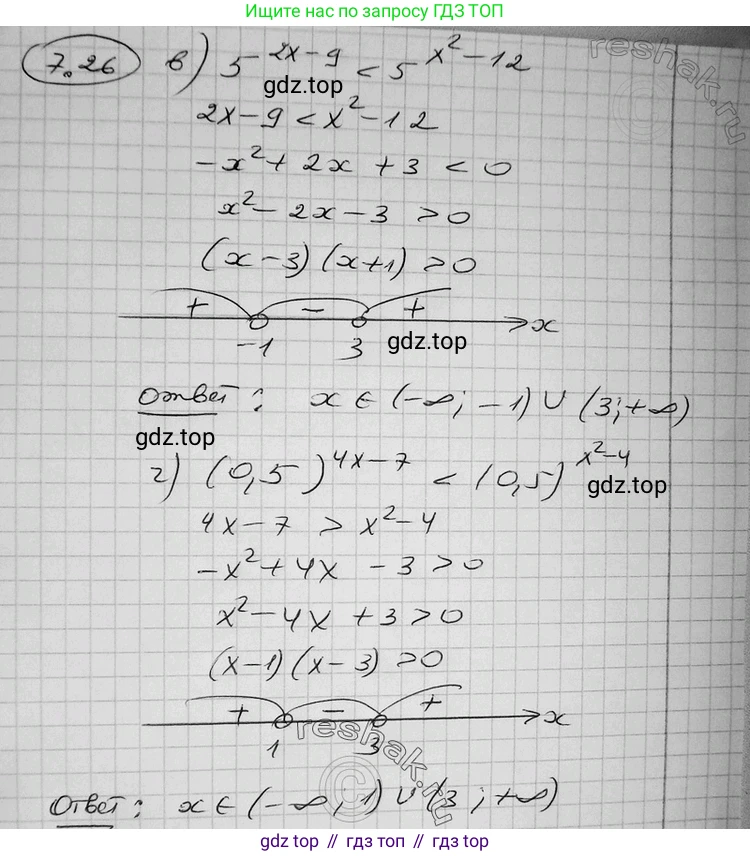 Ищите нас по запросу ГДЗ ТОП
7.26 в) 5^(2x-9) < 5^(x²-12)
reshak.ru
gdz.top
2x-9 < x²-12
-x²+2x+3 < 0
x²-2x-3 > 0
(x-3)(x+1) > 0
+ - + x
-1 3 gdz.top
Ответ: x ∈ (-∞; -1) ∪ (3; +∞)
gdz.top
г) (0,5)^(4x-7) < (0,5)^(x²-4)
gdz.top
4x-7 > x²-4
-x²+4x-3 > 0
x²-4x+3 > 0
(x-1)(x-3) > 0
+ - + x
1 3
reshak.ru
©
Ответ: x ∈ (-∞; 1) ∪ (3; +∞)
gdz.top // гдз топ // gdz.top